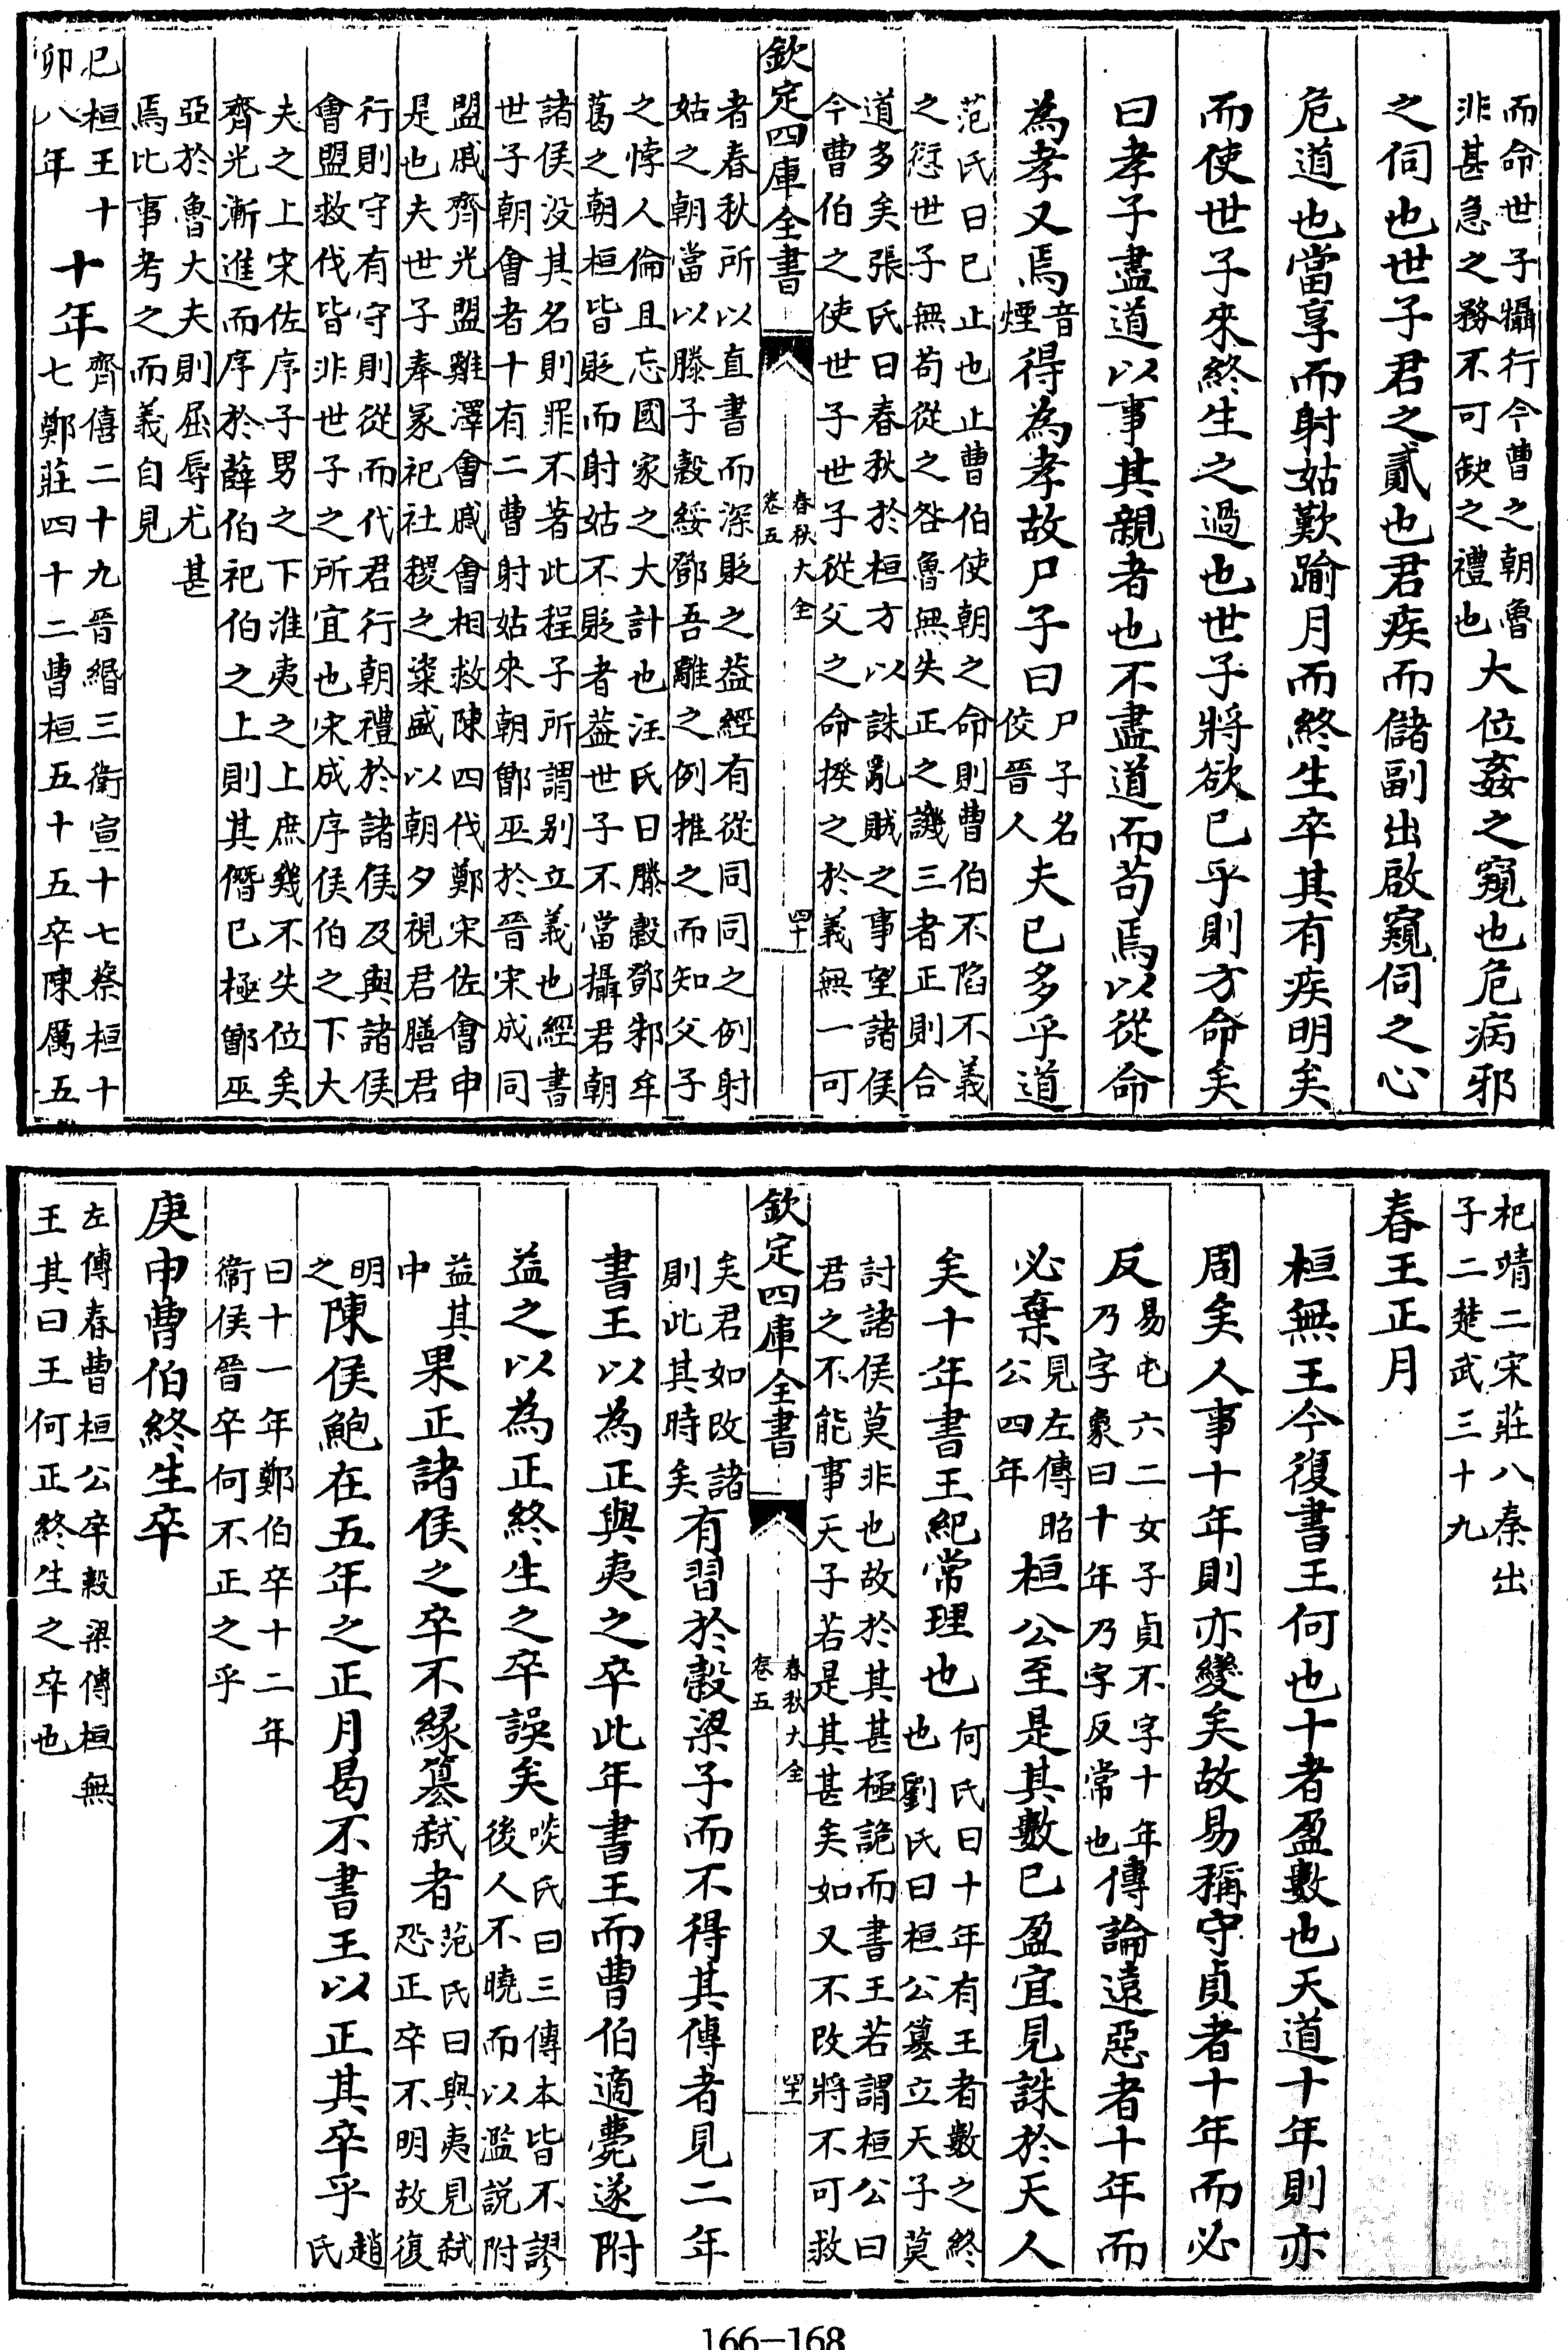 而命世子攝行今曹之朝魯
非甚急之務不可缺之禮也
大位姦之窺也危病邪
之伺也世子君之貳也君疾而儲副出啟窺伺之心
危道也當享而射姑歎踰月而終生卒其有疾明矣
而使世子來終生之過也世子將欲已乎則方命矣
曰孝子盡道以事其親者也不盡道而苟焉以從命
為孝又焉音煙得為孝故尸子曰尸子名佼晉人夫已多乎道
范氏曰已止也止曹伯使朝之命則曹伯不陷不義
之愆世子無苟從之咎魯無失正之譏三者正則合
道多矣張氏曰春秋於桓方以誅亂賊之事望諸侯
今曹伯之使世子世子從父之命揆之於義無一可
欽定四庫全書
春秋大全
卷五
四十
者春秋所以直書而深貶之益經有從同同之例射
姑之朝當以滕子穀綏鄧吾離之例推之而知父子
之悖人倫且忘國家之大計也汪氏曰滕穀鄧邾牟
葛之朝桓皆貶而射姑不貶者益世子不當攝君朝
諸侯没其名則罪不著此程子所謂别立義也經書
世子朝會者十有二曹射姑來朝鄫巫於晉宋成同
盟戚齊光盟雞澤會戚會相救陳四伐鄭宋佐會申
是也夫世子奉冢祀社稷之粢盛以朝夕視君膳君
行則守有守則從而代君行朝禮於諸侯及與諸侯
會盟救伐皆非世子之所宜也宋成序侯伯之下大
夫之上宋佐序子男之下淮夷之上庶幾不失位矣
齊光漸進而序於薛伯祀伯之上則其僭已極鄫巫
亞於魯大夫則屈辱尤甚
焉比事考之而義自見
巳桓王十
卯八年
十年
齊僖二十九晉緡三衛宣十七蔡桓十
七鄭莊四十二曹桓五十五卒陳厲五
杞靖二宋莊八秦出
子二楚武三十九
春王正月
桓無王今復書王何也十者盈數也天道十年則亦
周矣人事十年則亦變矣故易稱守貞者十年而必
反
易屯六二女子貞不字十年
乃字象曰十年乃字反常也
傳論遠惡者十年而
必棄
見左傳昭
公四年
桓公至是其數已盈宜見誅於天人
矣十年書王紀常理也
何氏曰十年有王者數之終
也劉氏曰桓公簒立天子莫
討諸侯莫非也故於其甚極詭而書王若謂桓公曰
君之不能事天子若是其甚矣如又不改將不可救
欽定四庫全書
春秋大全
卷五
四十一
矣君如改諸
則此其時矣
有習於穀梁子而不得其傳者見二年
書王以為正與夷之卒此年書王而曹伯適薨遂附
益之以為正終生之卒誤矣
啖氏曰三傳本皆不謬
後人不曉而以濫説附
益其
中
果正諸侯之卒不緣簒弑者
范氏曰與夷見弑
恐正卒不明故復
明
之
陳侯鮑在五年之正月曷不書王以正其卒乎
趙
氏
曰十一年鄭伯卒十二年
衛侯晉卒何不正之乎
庚申曹伯終生卒
左傳春曹桓公卒穀梁傳桓無
王其曰王何正終生之卒也
166-168